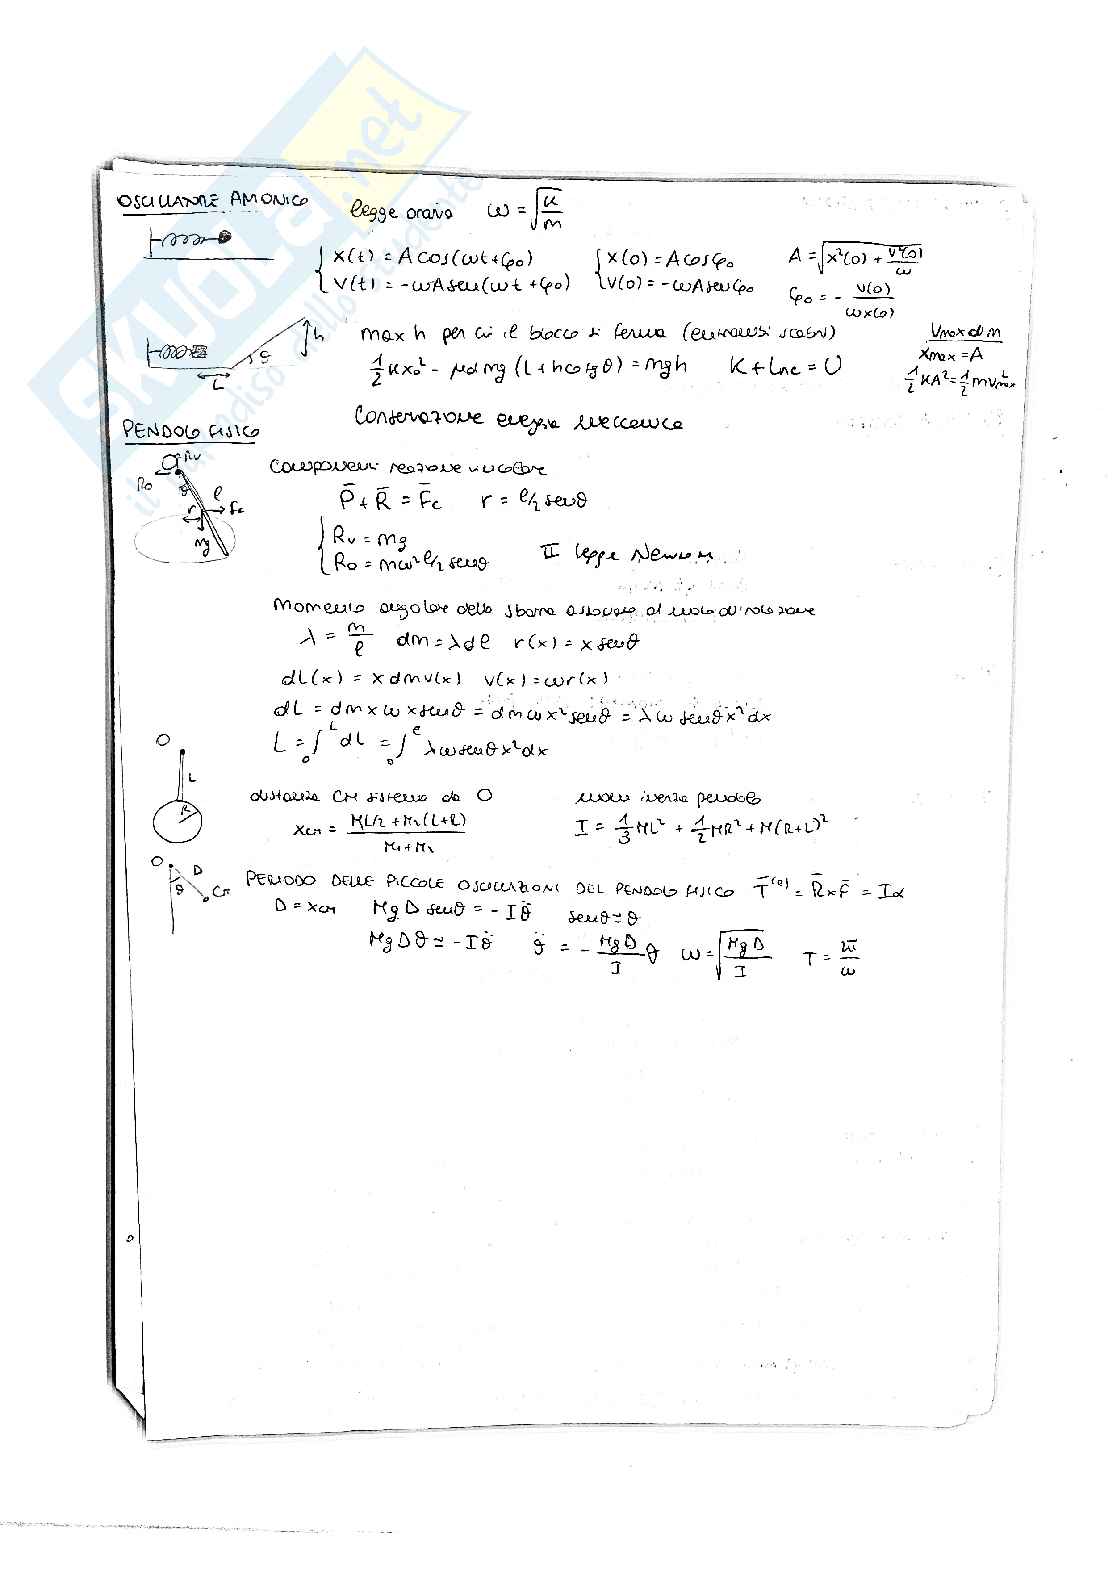 OSCILLATORE AMONICO
legge oraria ω = √(K/m)
{ x(t) = A cos(ωt + φ₀)
v(t) = -ωA sen(ωt + φ₀)
{ x(0) = A cos φ₀
v(0) = -ωA sen φ₀
A = √(x²(0) + v²(0)/ω)
φ₀ = - v(0)/ωx(0)
h
θ
L
max h per cui il blocco si ferma (entrambi scabri)
½ K x₀² - μd mg (L + h cotg θ) = mgh K + Lnc = U
Vmax di m
xmax = A
½ KA² = ½ m v²max
Conservazione energia meccanica
PENDOLO FISICO
Rv
Ro
θ
ℓ
r
Fc
mg
Componenti reazione vincolare
P̄ + R̄ = F̄c r = ℓ/2 sen θ
{ Rv = mg
Ro = mω² ℓ/2 sen θ
II legge Newton
Momento angolare della sbarra
λ = m/ℓ dm = λdℓ r(x) = x sen θ
dL(x) = x dm v(x) v(x) = ωr(x)
dL = dm x ω x sen θ = dm ω x² sen θ = λ ω sen θ x² dx
L = ∫₀ᴸ dL = ∫₀ℓ λ ω sen θ x² dx
O
L
R
distanza CM sistema da O
xcm = (M L/2 + M₂(L+R))/(M₁ + M₂)
mom inerzia pendolo
I = ⅓ ML² + ½ MR² + M(R+L)²
O
D
θ
Cm
PERIODO DELLE PICCOLE OSCILLAZIONI DEL PENDOLO FISICO T̄⁽⁰⁾ = R̄ x F̄ = Iα
D = xcm MgD sen θ = -I θ̈ sen θ ≃ θ
MgDθ ≃ -I θ̈ θ̈ = - MgD/I θ ω = √(MgD/I) T = 2π/ω